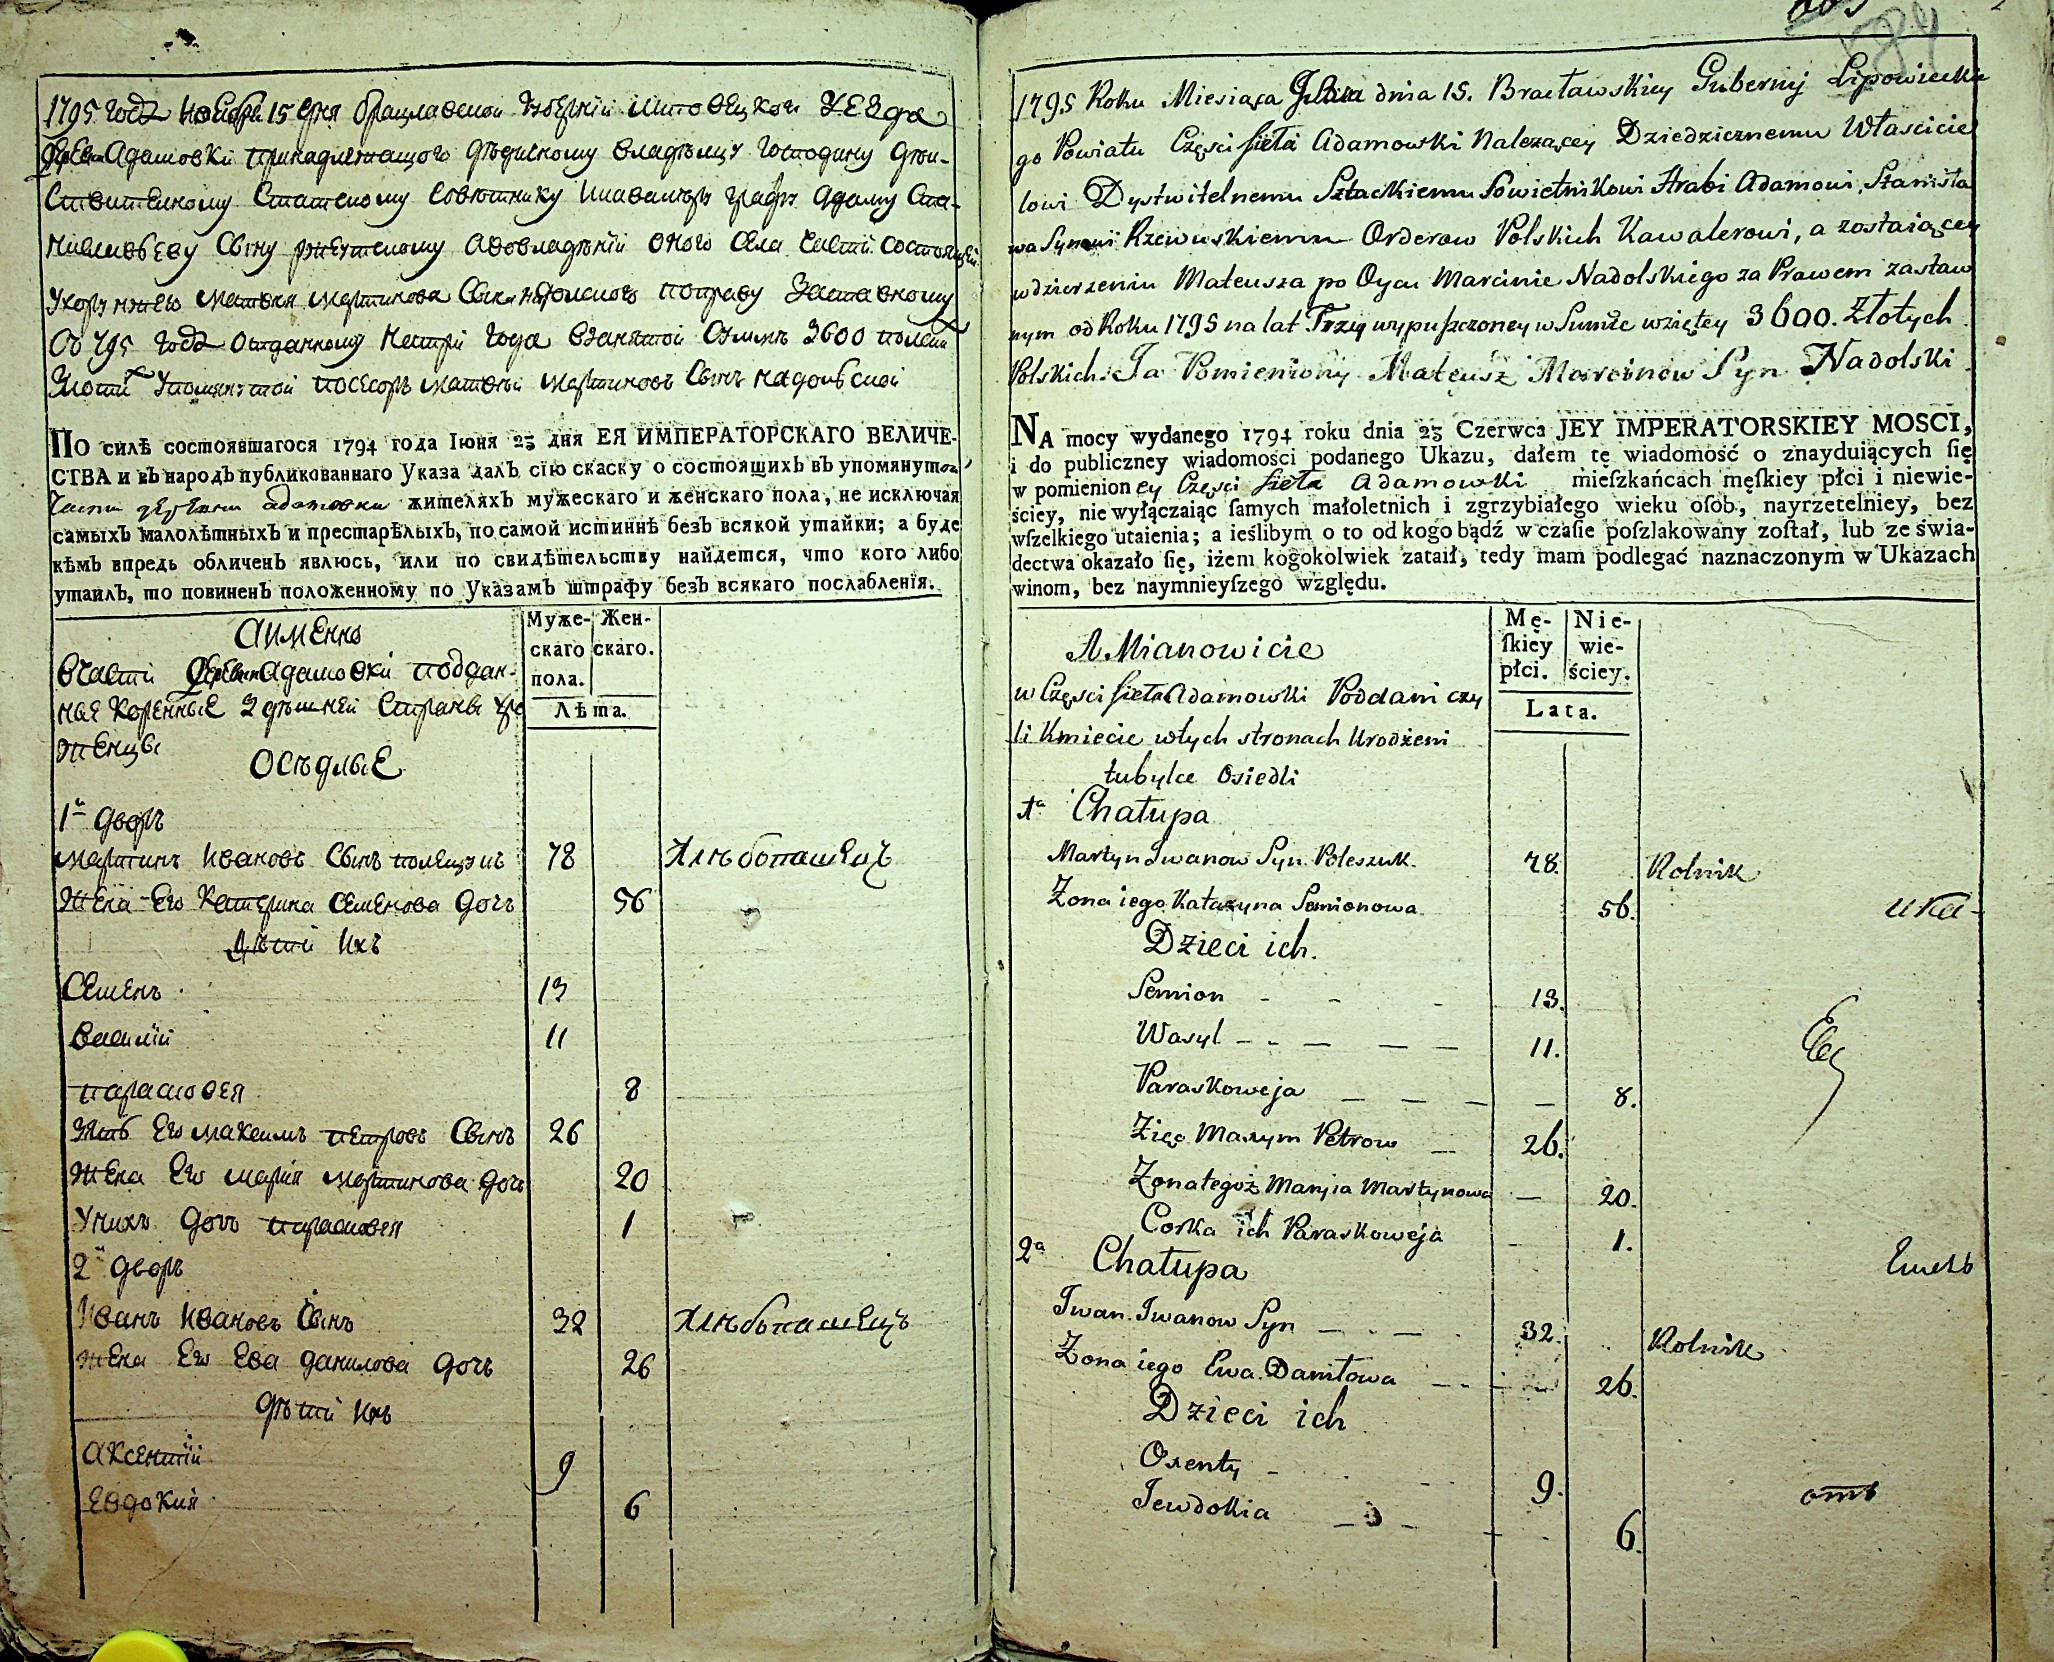 1795 года ноября 15 дня Брацлавской губернии Липовецкой уезда
Адамовки принадлежащого дѣдичному владѣлцу господину дѣй-
ствителному статскому совѣтнику графу Адаму Ста-
ниславовеву сыну ржевускому а во владѣнїи оного села части состоящей
матвея мартинова сына надолского по праву заставному
от 795 года отданному на три года взанятой суммѣ 3600 полских
злотих упомянутой посесоръ матвей мартиновъ сынъ надольской
ПО силѣ состоявшагося 1794 года Іюня 23 дня ЕЯ ИМПЕРАТОРСКАГО ВЕЛИЧЕ-
СТВА и въ народъ публикованнаго Указа далъ сїю скаску о состоящихъ въ упомянутой
части деревни адамовки жителяхъ мужескаго и женскаго пола, не исключая
самыхъ малолѣтныхъ и престарѣлыхъ, по самой истиннѣ безъ всякой утайки; а буде
кѣмъ впредь обличенъ явлюсь, или по свидѣтельству найдется, что кого либо
утаилъ, то повиненъ положенному по Указамъ штрафу безъ всякаго послабленїя.
Муже- Жен-
скаго скаго.
пола.
Лѣта.
А имЕнно
вчасти деревни Адамовки поддан-
ные корЕнныЕ здѣшнЕй стираны уро
жЕнцы
ОсѣдлыЕ
1й дворъ
мартинъ Ивановъ сынъ полещукъ 78 хлѣбопашЕцъ
жЕна Его катерина сЕмЕнова дочь 56
дѣти ихъ
СЕмЕнъ 13
василий 11
парасковея 8
зять Его максимъ пЕтровъ сынъ 26
жЕна Его марїя мартинова дочь 20
у нихъ дочь парасковея 1
2й дворъ
Иванъ Ивановъ сынъ 32 хлѣбопашЕцъ
жЕна Его Ева данилова дочь 26
дѣти ихъ
аксЕнтїй 9
Евдокия 6
1795 Roku Miesiąca dnia 15. Bracławskiey Guberniy Lipowieckie
go Powiatu Części sieła Adamowski Nalezącey Dziedzicznemu Właścicie
lowi Dystwitelnemu Sztackiemu Sowietnikowi Hrabi Adamowi, Stanisła
wa Synowi Rzewuskiemu Orderow Polskich Kawalerowi, a zostaiącey
w dzierzeniu Mateusza po Oycu Marcinie Nadolskiego za Prawem zastaw
nym od Roku 1795 na lat Trzy wypuszczoney w Summie wziętey 3600. Złotych
Polskich. Ja Pomieniony Mateusz Marcinow Syn Nadolski
NA mocy wydanego 1794 roku dnia 23 Czerwca JEY IMPERATORSKIEY MOSCI,
i do publiczney wiadomości podanego Ukazu, dałem tę wiadomość o znayduiących się
w pomienioney Części sieła Adamowski mieſzkańcach męſkiey płci i niewie-
ściey, nie wyłączaiąc ſamych małoletnich i zgrzybiałego wieku oſob, nayrzetelniey, bez
wſzelkiego utaienia; a ieślibym o to od kogo bądź w czaſie poſzlakowany zoſtał, lub ze świa-
dectwa okazało ſię, iżem kogokolwiek zataił, tedy mam podlegać naznaczonym w Ukazach
winom, bez naymnieyſzego względu.
Mę- Nie-
ſkiey wie-
płci. ściey.
Lata.
A. Mianowicie
w Części sieła Adamowski Poddani czy
li Kmiecie w tych stronach Urodzeni
tubylce Osiedli
1a Chałupa
Martyn Iwanow Syn Poleszuk. 78. Rolnik
Żona iego Katazyna Semionowa 56. ика-
Dzieci ich.
Semion - - - 13.
Wasyl - - - - - 11.
Paraskoweja - - - - 8.
Zięć Maxym Petrow - 26.
Żona tegoż Maryia Martynowa - 20.
Corka ich Paraskoweja - 1.
2a Chałupa
Iwan Iwanow Syn - . - 32. Rolnik
Żona iego Ewa Daniłowa 26.
Dzieci ich
Oxenty - 9.
Jewdokia 6.
отъ